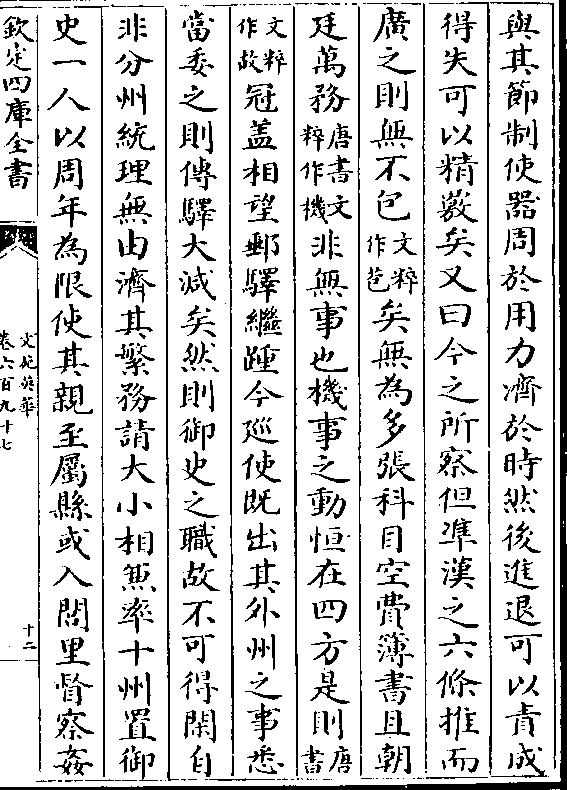 與其節制使器周於用力濟於時然後進退可以責成
得失可以精覈矣又曰今之所察但準漢之六條推而
廣之則無不包文粹作苞矣無為多張科目空費簿書且朝
廷萬務唐書文粹作機非無事也機事之動恒在四方是則唐書
文粹作故冠盖相望郵驛繼踵今廵使既出其外州之事悉
當委之則傳驛大減矣然則御史之職故不可得閑自
非分州統理無由濟其繁務請大小相兼率十州置御
史一人以周年為限使其親至屬縣或入閭里督察姦
欽定四庫全書
文苑英華
卷六百九十七
十二